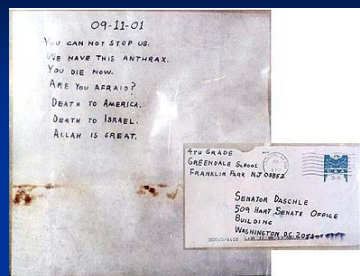 09-11-01
YOU CAN NOT STOP US.
WE HAVE THIS ANTHRAX.
YOU DIE NOW.
ARE YOU AFRAID?
DEATH TO AMERICA.
DEATH TO ISRAEL.
ALLAH IS GREAT.
4TH GRADE
GREENDALE SCHOOL
FRANKLIN PARK NJ 08852
SENATOR DASCHLE
509 HART SENATE OFFICE
BUILDING
WASHINGTON D.C.
USA